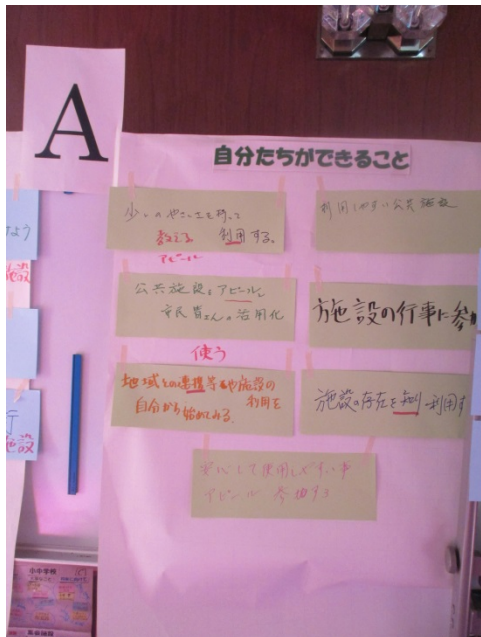 A
自分たちができること
少しのやさしさを持って
教える 利用する。
アピール
利用しやすい公共施設
公共施設をアピールし
市民皆さんの活用化
施設の行事に参
使う
地域との連携等や施設の
利用を
自分から始めてみる。
施設の存在を知り利用す
安心して使用しやすい事
アピール 参加する
よう
施設
行
施設
小中学校